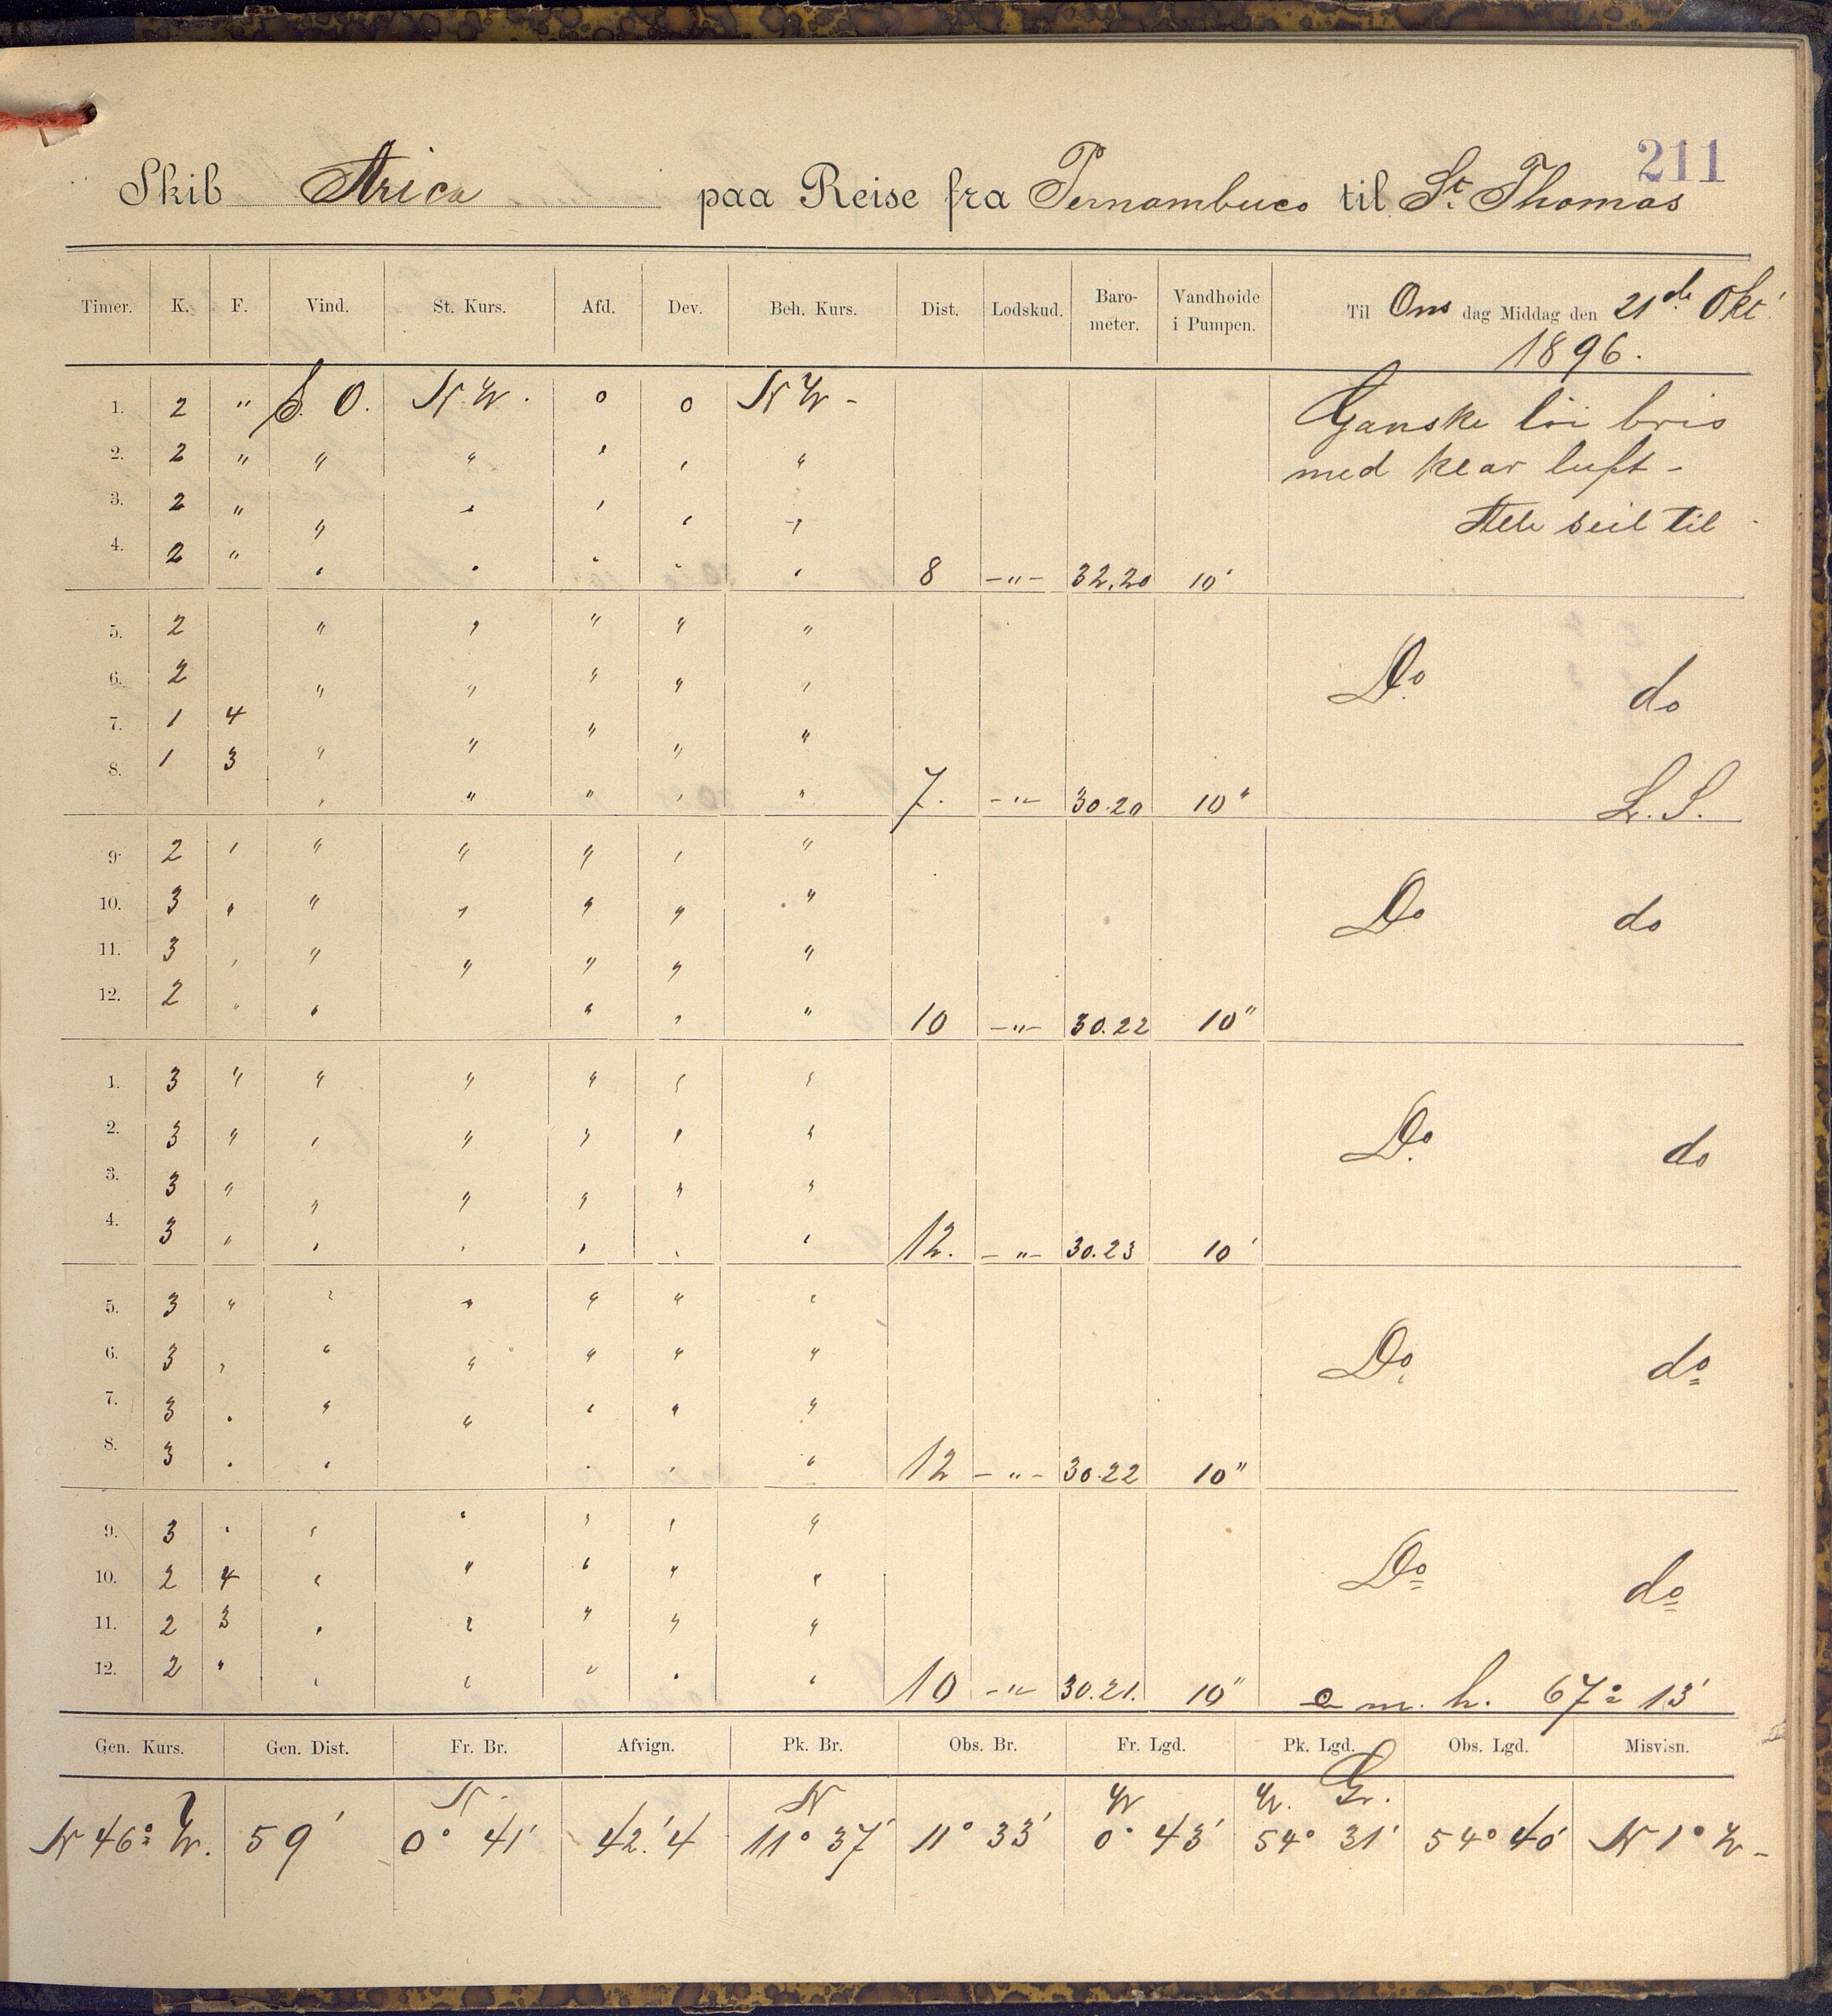 211
Skib Arica paa Reise fra Pernambuco til St. Thomas
Timer. K. F. Vind. St. Kurs. Afd. Dev. Beh. Kurs. Dist. Lodskud. Baro-meter. Vandhoide i Pumpen. Til Ons dag Middag den 21de Okt. 1896.
1. 2 " S. O. N W. 0 0 N W - Ganske løi bris
2. 2 " " " " " " med klar luft -
3. 2 " " " " " " Alle seil til
4. 2 " " " " " " 8 -"- 32.20 10"
5. 2 " " " " "
6. 2 " " " " " Do do
7. 1 4 " " " " "
8. 1 3 " " " " " 7. -"- 30.20 10" L. S.
9. 2 " " " " " "
10. 3 " " " " " " Do do
11. 3 " " " " " "
12. 2 " " " " " 10 -"- 30.22 10"
1. 3 " " " " " "
2. 3 " " " " " " Do do
3. 3 " " " " " "
4. 3 " " " " " " 12. -"- 30.23 10"
5. 3 " " " " " "
6. 3 " " " " " " Do do
7. 3 " " " " " "
8. 3 " " " " " 12 -"- 30.22 10"
9. 3 " " " " " "
10. 2 4 " " " " " Do do
11. 2 3 " " " " "
12. 2 " " " " " " 10 -"- 30.21. 10" m. h. 67° 13'
Gen. Kurs. Gen. Dist. Fr. Br. Afvign. Pk. Br. Obs. Br. Fr. Lgd. Pk. Lgd. Obs. Lgd. Misvisn.
N. N W W. Gr.
N 46° W. 59' 0° 41' 42.'4 11° 37' 11° 33' 0° 43' 54° 31' 54° 40' N 1° W -